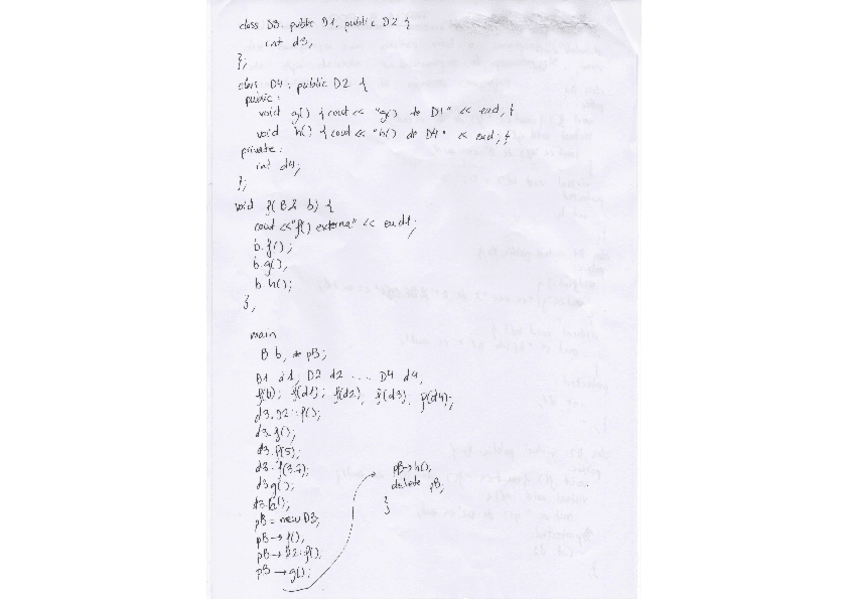 class D3: public D1, public D2 {
int d3;
};
class D4: public D2 {
public:
void g() { cout << "g() de D1" << end; }
void h() { cout << "h() de D4" << end; }
private:
int d4;
};
void f(B& b) {
cout << "f() externa" << endl;
b.f();
b.g();
b.h();
};
main
B b, pB;
D1 d1, D2 d2 .... D4 d4,
f(b); f(d1); f(d2), f(d3), f(d4);
d3.D2::f();
d3.f();
d3.f(5);
d3.f(3.7);
d3g();
d3.h();
pB = new D3;
pB→f(),
pB→D2::f(),
pB→g();
pB→h();
delete pB;
}